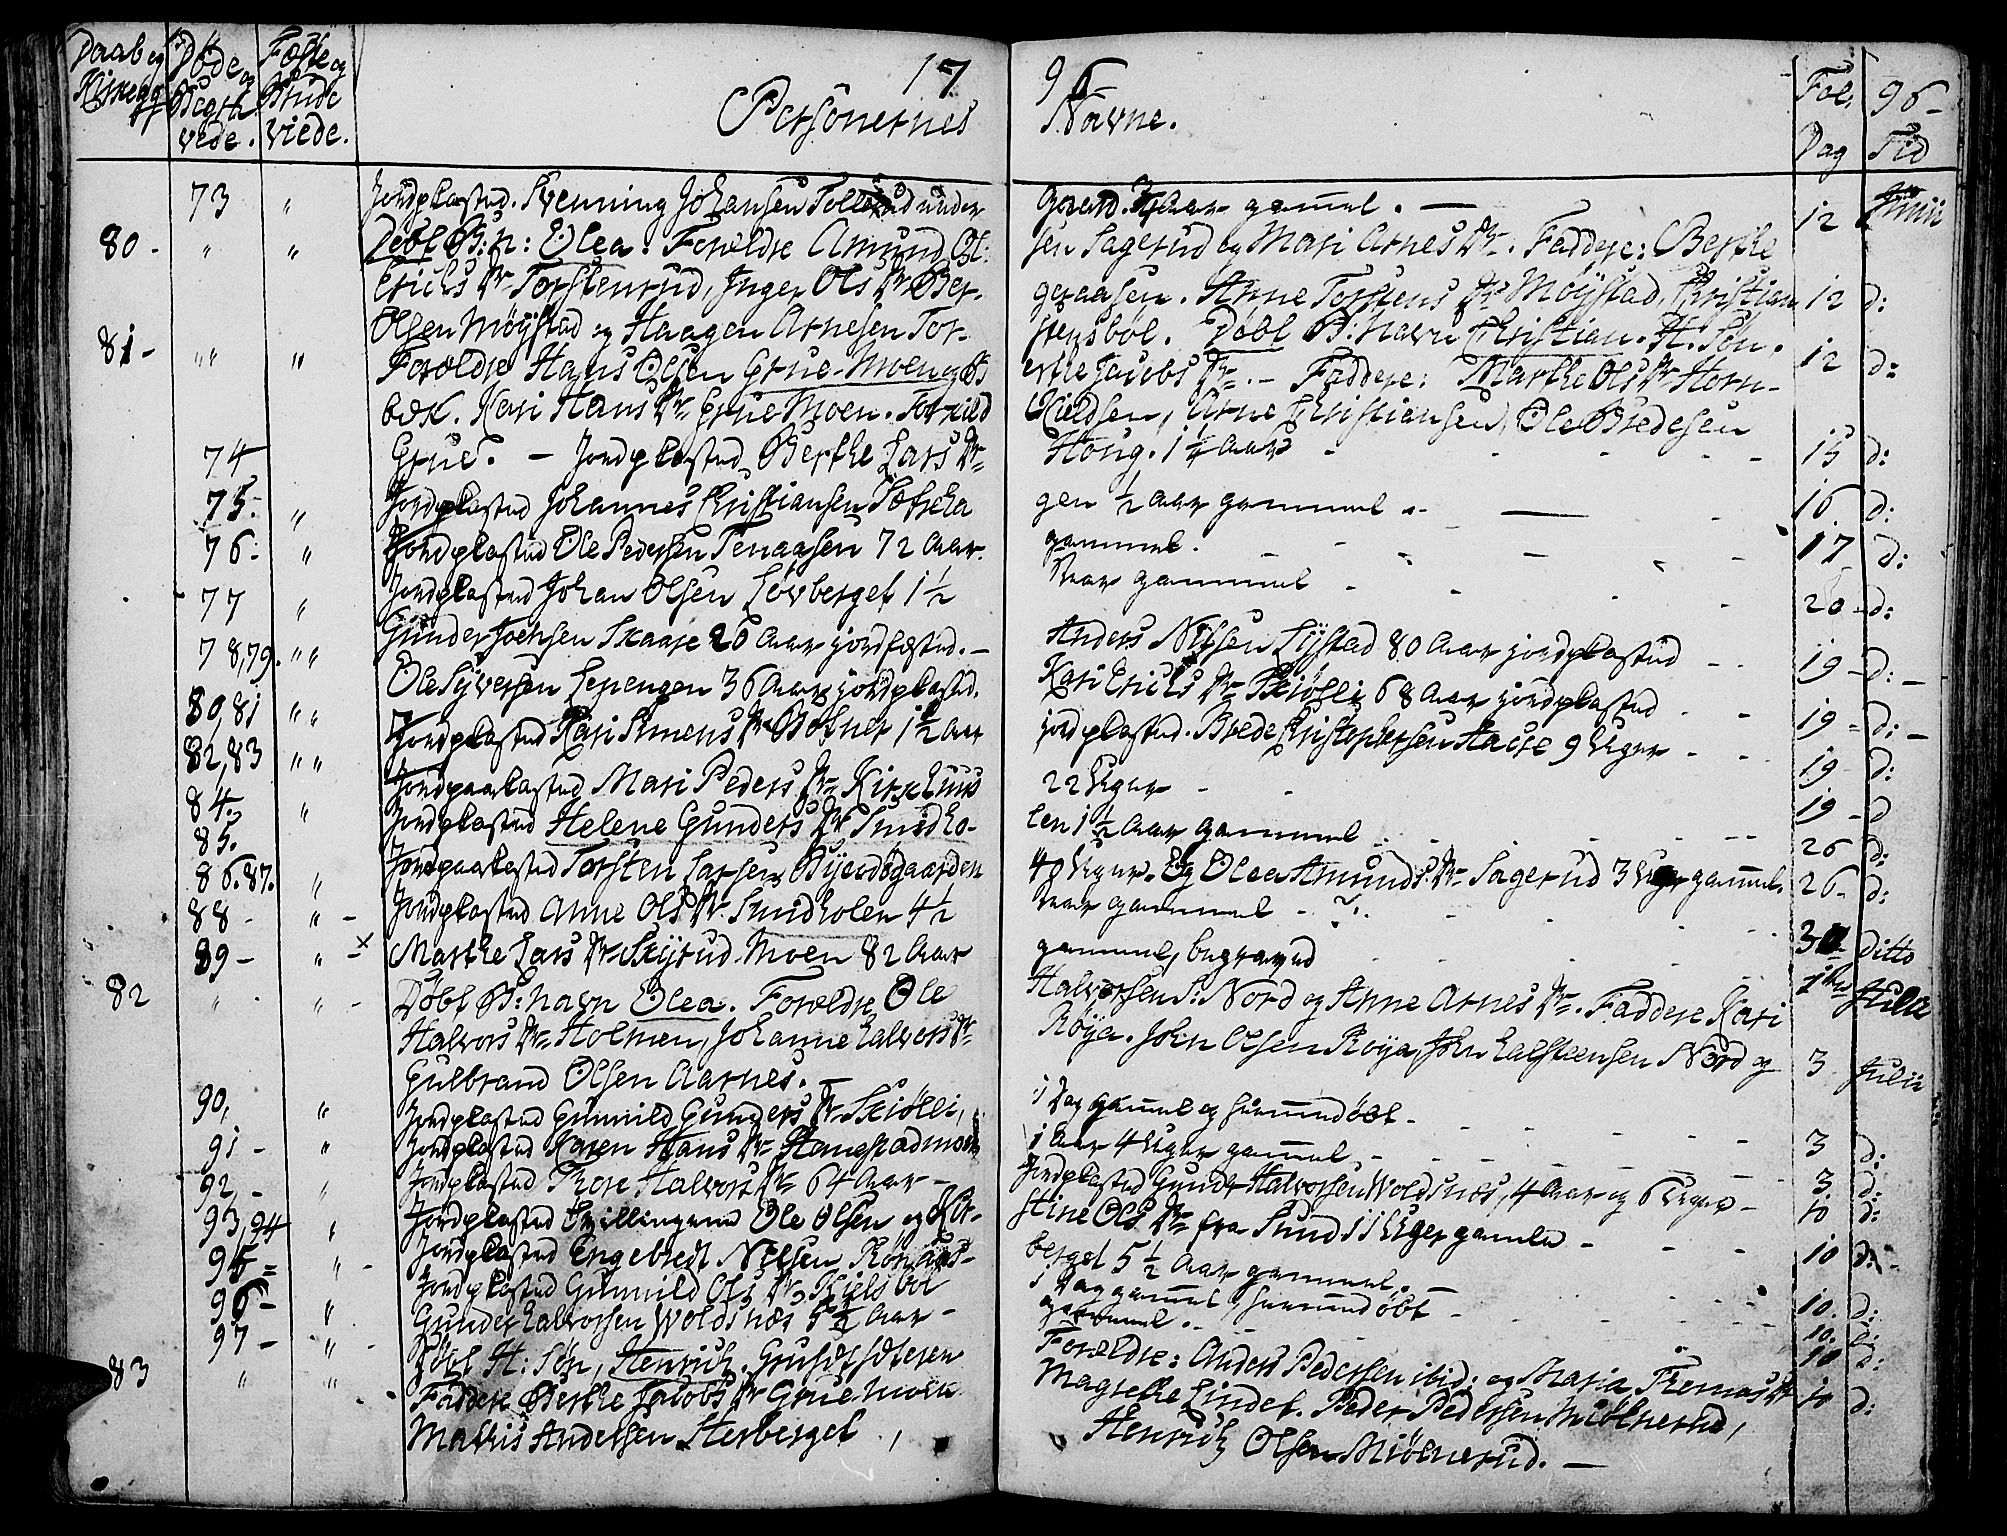 Daab og Kirkegg Døde og Begravede. Fæste og Brude viede. Personernes 17 96 Navne. Fol. 96-
Dag Tid
73 " Jordpkasted. Svenning Johansen under gaard. aar gamel. 12 Junii
80- " " Døbt B: n: Olea. Forældre Amund Ol: sen Sagerud og Mari Arnes Dr. Faddere: Berthe
Erichs Dr Torstenrud, Inger Ols Dr Ber- geraasen. Anne Torstens Dr Møystad, Christian 12 d:
Olsen Møystad og Haagen Arnesen Tor- stensbøl. Døbt B: Navn Christian. H. Søn.
81- " " Forældre Hans Olsen Grue-Moen og B erthe Jacobs Dr. - Faddere: Marthe Ols Dr Horn- 12 d:
bæk. Kari Hans Dr Grue Moen. Torkild Kieldsen, Arne Christiansen, Ole Bredesen
74 Grue. - Jordpkasted Berthe Lars Dr Houg. 1 1/2 Aar 15 d:
75. " Jordpkasted Johannes Christiansen gen 1/2 aar gammel. 16 d:
76. " Jordpkasted Ole Pedersen Tenaasen 72 Aar gammel. 17 d:
77 " Jordpkasted Johan Olsen Løvberget 1 1/2 Aar gammel 20 d:
78,79. " " Gunder Joensen Skaare 20 Aar jordfæsted. - Anders Nilsen Lystad 80 Aar jordpkasted 19 - d: -
80,81 " " Ole Syversen Lepengen 36 Aar jordpkasted. Kari Erichs Dr Skiølli 68 Aar jordpkasted 19 - d: -
82,83 " " Jordpkasted Kari Simens Dr 1 1/2 Aar jordpkasted. Brede Christophersen 9 Uger 19 d:
84. " Jordpaakasted Mari Peders Dr Kirkhuus 22 Uger 19 - d
85. Jordpkasted Helene Gunders Dr Sundho- len 1 1/2 Aar gammel 26 d:
86.87. " Jordpaakasted Torsten Larsen 40 Uger. Og Olea Amunds Dr Sagerud 3 Uger gamel. 26. d:
88 - " - Jordpkasted Anne Ols Dr. Sundholen 4 1/2 Aar gammel
89 - " - x Marthe Lars Dr Skyrud-Moen 82 Aar gammel, begraved 30 ditto
82 " " - Døbt B: Navn Olea. Forældre Ole Halvorsen S: Nord og Anne Arnes Dr. Faddere Kari 1 Julii
Halvors Dr. Holmen, Johanne Halvors Dr Røya. John Olsen Røya, John Halsteensen Nord og
Gulbrand Olsen Aarnes. - 3 Julii
90, " Jordpkasted Gunnild Gunders Dr Skiølli, 1 Dag gamel og hiemmedøbt
91 - " Jordpkasted Karen Hans Dr 1 Aar 4 Uger gamel 3 d:
92, - " Jordpkasted Thore Halvors Dr 64 Aar - Jordpkasted Gunder Halvorsen Woldsnæs, 4 Aar og 6 Uger 3 d:
93,94 " Jordpkasted Tvillingerne Ole Olsen og Kir- stine Ols Dr fra Sund 11 Uger gamle 10 d:
95 = " - Jordpkasted Engebredt Nilsen berget 5 1/2 Aar gammel. 10 d: -
96 - " Jordpkasted Gunnild Ols Dr. Kielsbøl 1 Dag gamel, hiemmedøbt 10. d:
97 - " - Gunder Halvorsen Woldsnæs 5 1/2 Aar - gammel. 10. d:
83 " " Døbt H: Søn, Henrich. Forældre: Anders Pedersen ibid: og Maria Thomas Dr 10 d:
Faddere Berthe Jacobs Dr Grue Moen Magrethe Lindet. Peder Pedersen Miølnerud, 10 d:
Mathis Andersen Herberget, Henrich Olsen Miølnerud. -